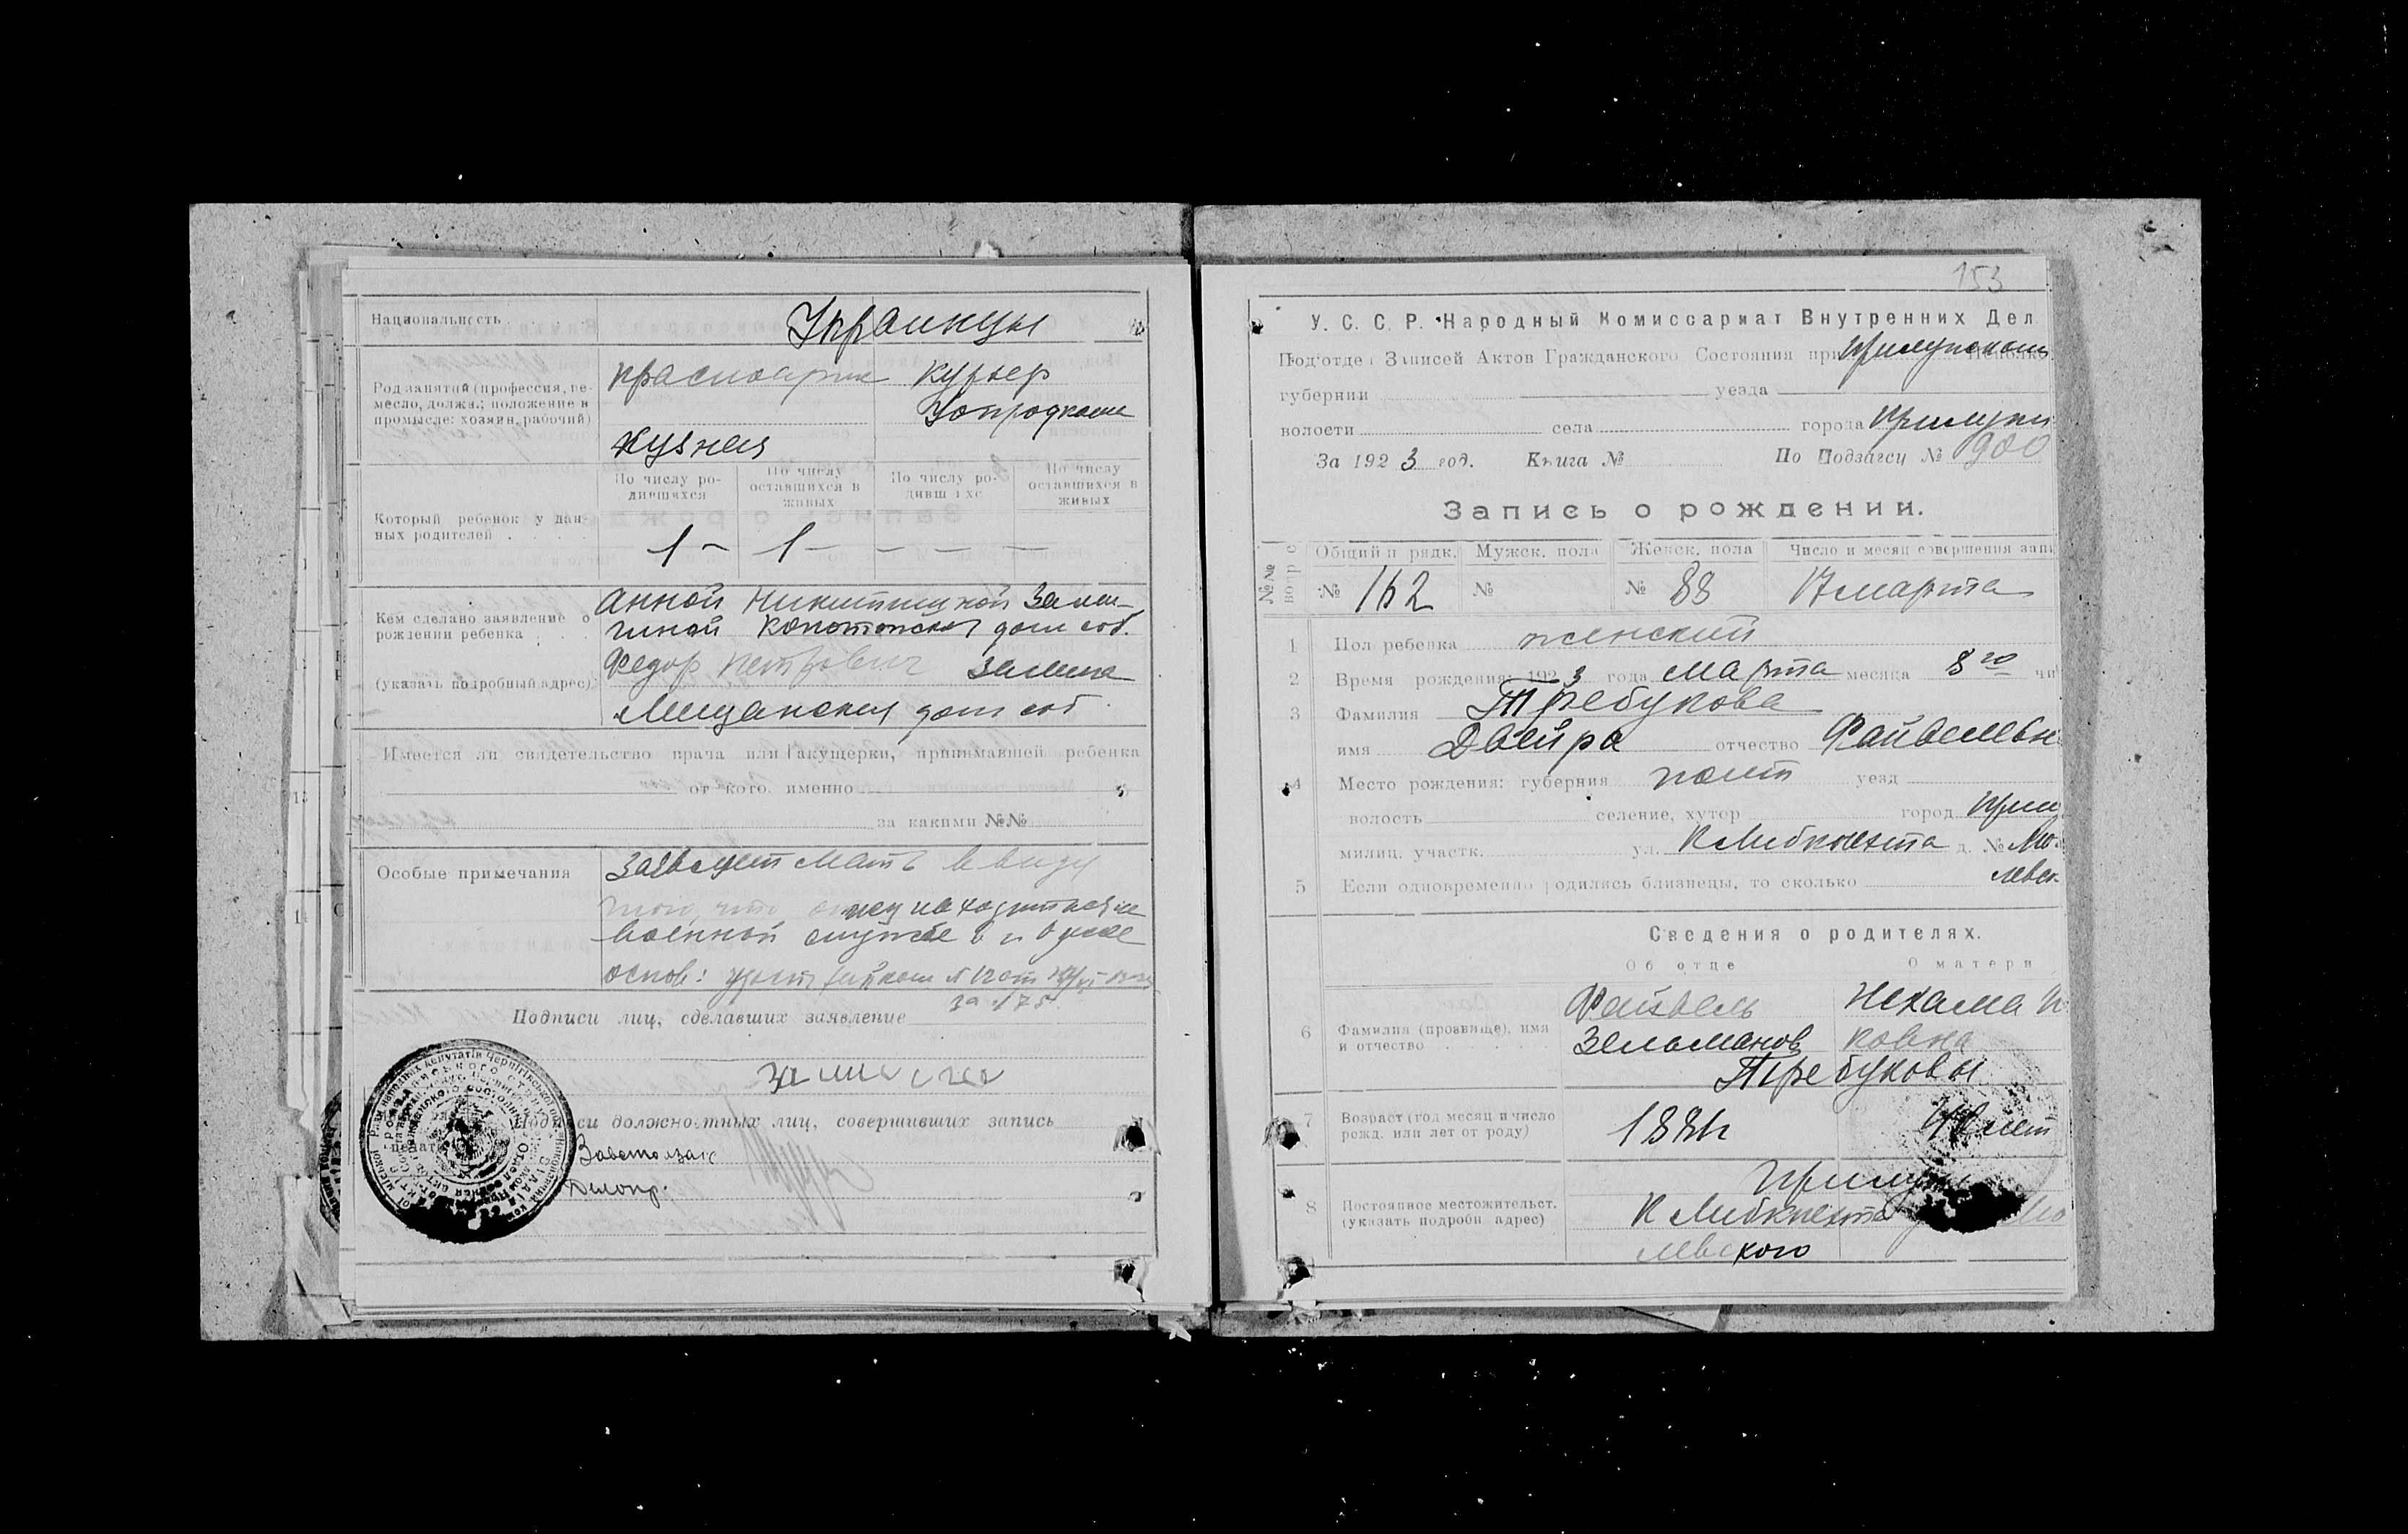 Национальность
Украинцы
Род занятий (профессия, ре-
месло, должн.; положение в
промысле: хозяин, рабочий)
красноарм
курьер
кузнец
Который ребенок у дан-
ных родителей . . . .
По числу ро-
дившихся
По числу
оставшихся в
живых
По числу ро-
дивш хс
По числу
оставшихся в
живых
1 – 1 – – – –
Кем сделано заявление о
рождении ребенка . . .
(указать подробный адрес)
Анной Никитичной
Конотопская дом соб.
Федор Петрович
Мещанская дом соб.
Имеется ли свидетельство врача или акушерки, принимавшей ребенка
от кого именно
за какими №№
Особые примечания
Заявляет мать ввиду
того, что отец находится на
военной службе
основ:
Подписи лиц, сделавших заявление
Подписи должностных лиц, совершивших запись
Делопр.
153
У. С. С. Р. Народный Комиссариат Внутренних Дел
Подотдел Записей Актов Гражданского Состояния при Прилукском
губернии уезда
волости села города Прилуки
За 1923 год. Книга № По Подзагсу № 900
Запись о рождении.
№№ Общий п рядк. Мужск. пола Женск. пола Число и месяц совершения запи
№ 162 № № 88 17 марта
1 Пол ребенка женский
2 Время рождения: 1923 года марта месяца 8го чи
3 Фамилия Требукова
имя Двейра отчество Файвелевн
4 Место рождения: губерния Полт уезд
волость селение, хутор город Прил
милиц. участк. ул. К Либкнехта д. № Мо
левск
5 Если одновременно родились близнецы, то сколько
Сведения о родителях.
Об отце О матери
6 Фамилия (прозвище), имя
и отчество . . . . . .
Файвель
Зельманов
Нехама И
ковна
Требуковы
7 Возраст (год месяц и число
рожд. или лет от роду)
188
40 лет
8 Постоянное местожительст.
(указать подробн. адрес)
Прилуки
К Либкнехта Мо
левского